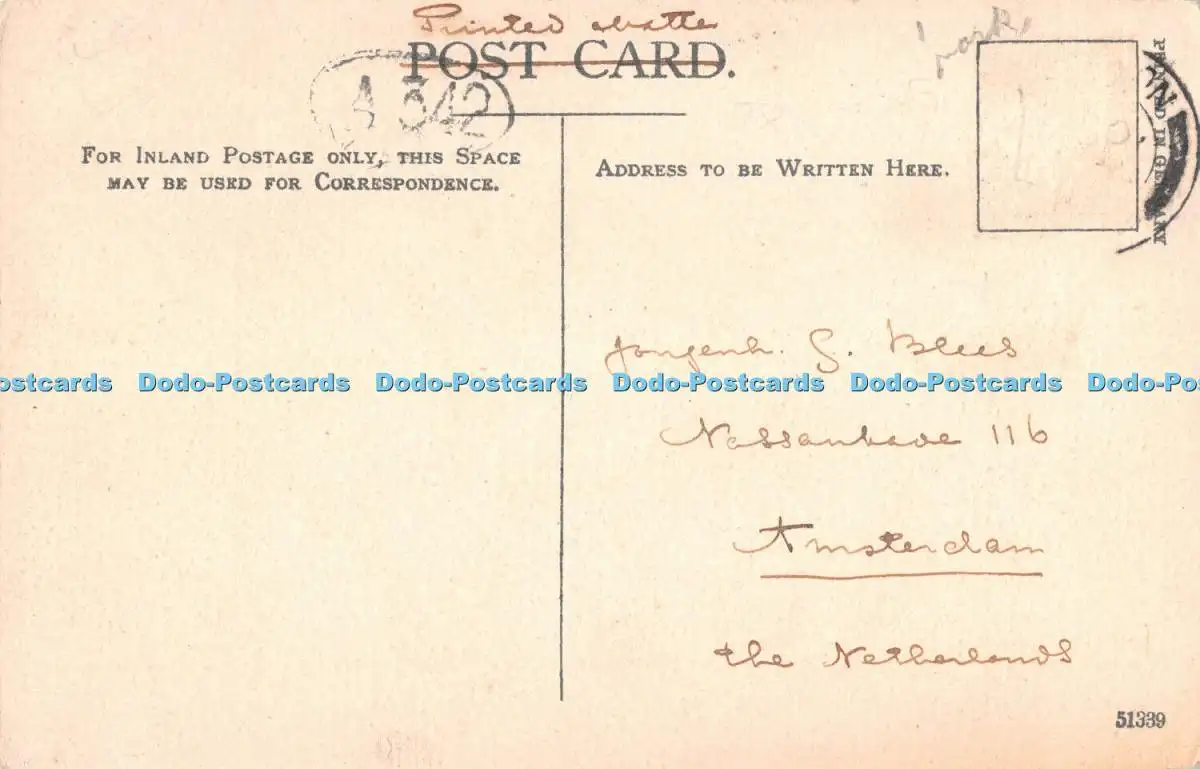 Printed Matter
POST CARD.
A 342
FOR INLAND POSTAGE ONLY, THIS SPACE
MAY BE USED FOR CORRESPONDENCE.
ADDRESS TO BE WRITTEN HERE.
PRINTED IN GERMANY
Jongenh. G. Blees
Dodo-Postcards Dodo-Postcards Dodo-Postcards Dodo-Postcards
Nassaukade 116
Amsterdam
the Netherlands
51339